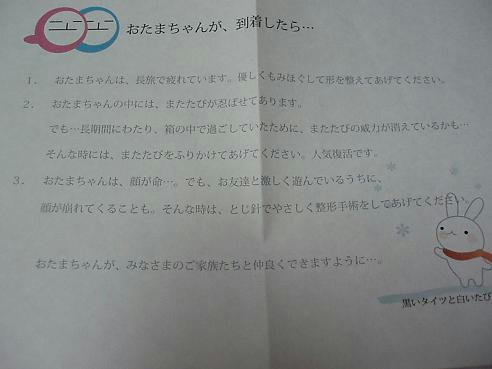 ニュニュ
おたまちゃんが、到着したら…
1. おたまちゃんは、長旅で疲れています。優しくもみほぐして形を整えてあげてください。
2. おたまちゃんの中には、またたびが忍ばせてあります。
でも…長期間にわたり、箱の中で過ごしていたために、またたびの威力が消えているかも…
そんな時には、またたびをふりかけてあげてください。人気復活です。
3. おたまちゃんは、顔が命…。でも、お友達と激しく遊んでいるうちに、
顔が崩れてくることも。そんな時は、とじ針でやさしく整形手術をしてあげてください。
おたまちゃんが、みなさまのご家族たちと仲良くできますように…。
黒いタイツと白いたび